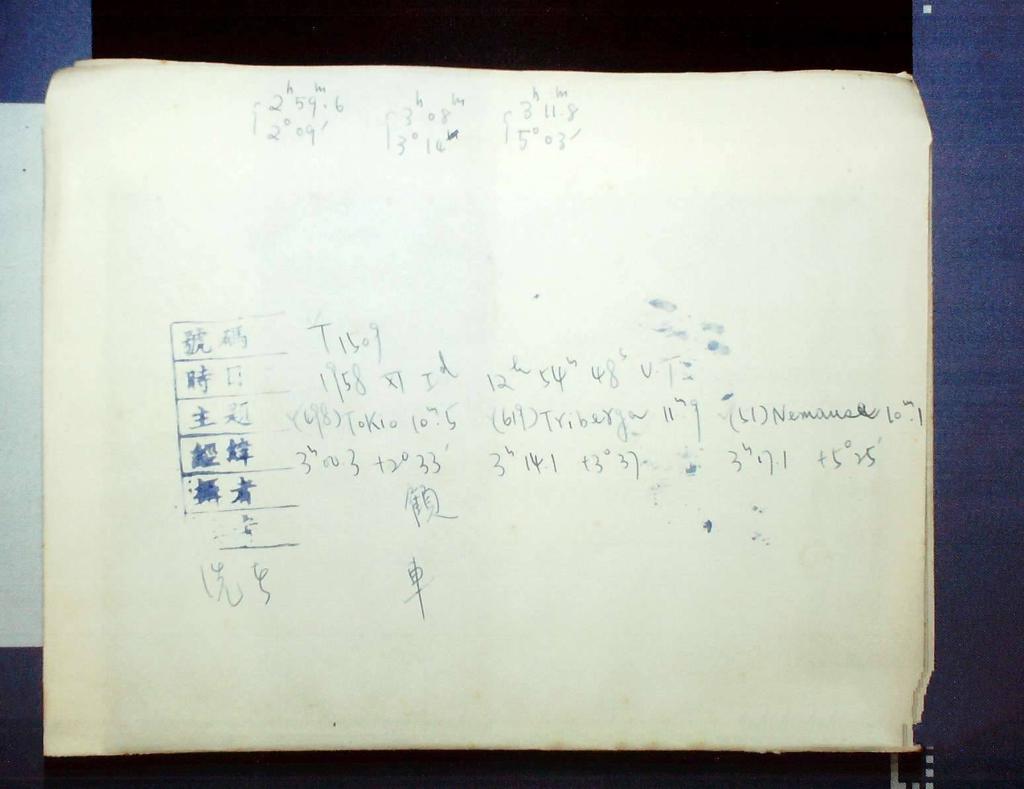 2ʰ 59ᵐ.6 3ʰ 08ᵐ 3ʰ 11ᵐ.8
2° 09′ 3° 14′ 5° 03′
號碼 T1509
時日 1958 XI Iᵈ 12ʰ 54ᵐ 48ˢ U.T=
主題 (498) Tokio 10ᵐ.5 (619) Triberga 11ᵐ.9 (51) Nemausa 10ᵐ.1
經緯 3ʰ 00.3 +2° 33′ 3ʰ 14.1 +3° 37 3ʰ 17.1 +5° 25′
攝者 顧
洗者 車